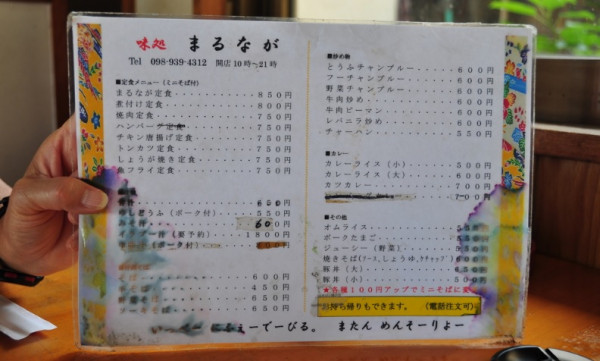 味処 まるなが
Tel 098-939-4312 開店10時~21時
■定食メニュー(ミニそば付)
まるなが定食 850円
煮付け定食 800円
焼肉定食 750円
ハンバーグ定食 750円
チキン唐揚げ定食 750円
トンカツ定食 750円
しょうが焼き定食 750円
魚フライ定食 750円
650
(ポーク付) 550円
みそ汁 600円
イラブー汁(要予約) 1800円
600円
450円
650円
650円
にふぇーでーびる。 またん めんそーりよー
■炒め物
とうふチャンプルー 600円
フーチャンプルー 600円
野菜チャンプルー 600円
牛肉炒め 600円
牛肉ピーマン 600円
レバニラ炒め 600円
チャーハン 550円
■カレー
カレーライス(小) 500円
カレーライス(大) 600円
カツカレー 700円
■その他
オムライス
ポークたまご
ジューシー(野菜)
焼きそば(ソース,しょうゆ,ケチャップ)
豚丼(大)
豚丼(小)
★各種100円アップでミニそばに変
お持ち帰りもできます。 (電話注文可)